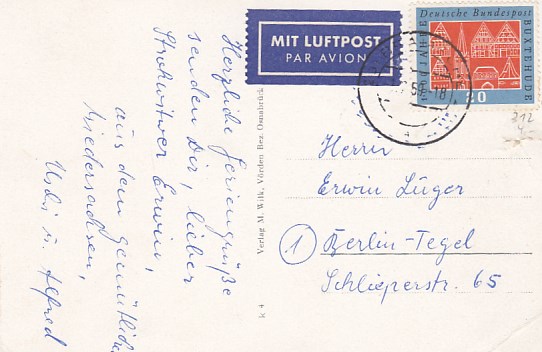 MIT LUFTPOST
PAR AVION
Deutsche Bundespost
BUXTEHUDE
JAHRE
20
59.-18
312
Herzliche Feriengrüße
senden Dir, lieber
Strohwitwer Erwin,
aus dem gemütlichen
Niedersachsen,
Uschi u. Alfred
Verlag M. Wilk, Vörden Bez. Osnabrück
k 4
Herrn
Erwin Lüger
1 Berlin-Tegel
Schlieperstr. 65